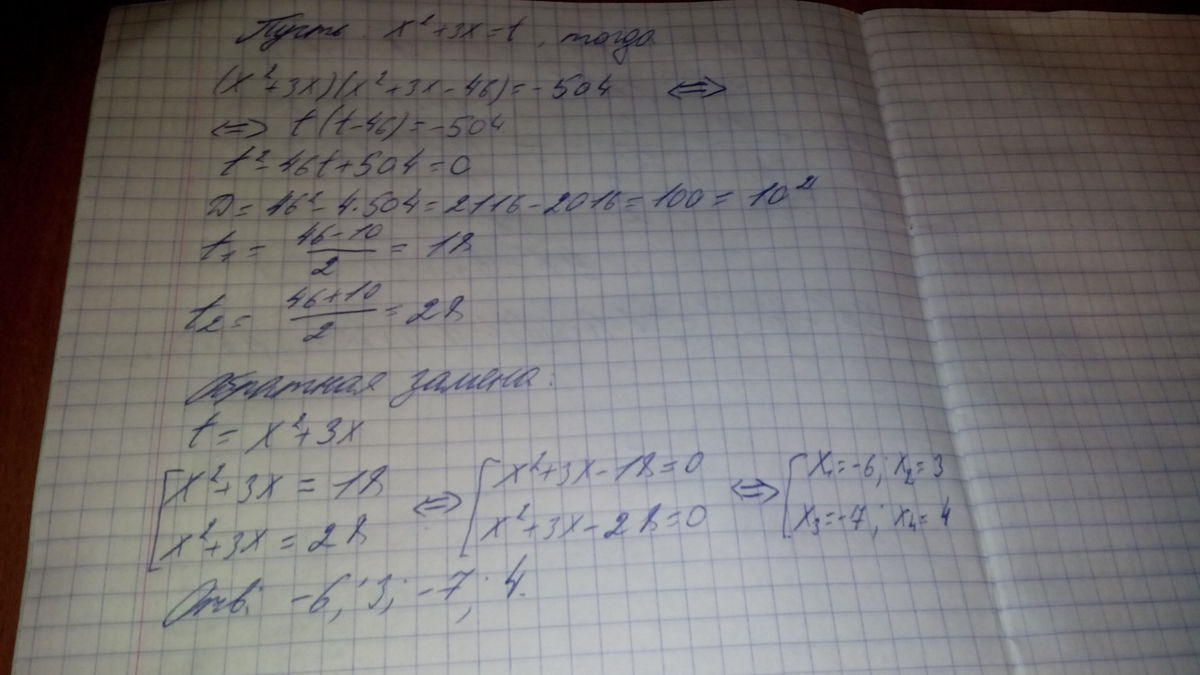 Пусть x²+3x=t, тогда
(x²+3x)(x²+3x-46)=-504 <=>
<=> t(t-46)=-504
t²-46t+504=0
D=46²-4·504=2116-2016=100=10²
t₁= (46-10)/2 = 18
t₂= (46+10)/2 = 28
Обратная замена:
t=x²+3x
[x²+3x=18 <=> [x²+3x-18=0 <=> [x₁=-6; x₂=3
x²+3x=28 x²+3x-28=0 x₃=-7; x₄=4
Отв: -6; 3; -7; 4.